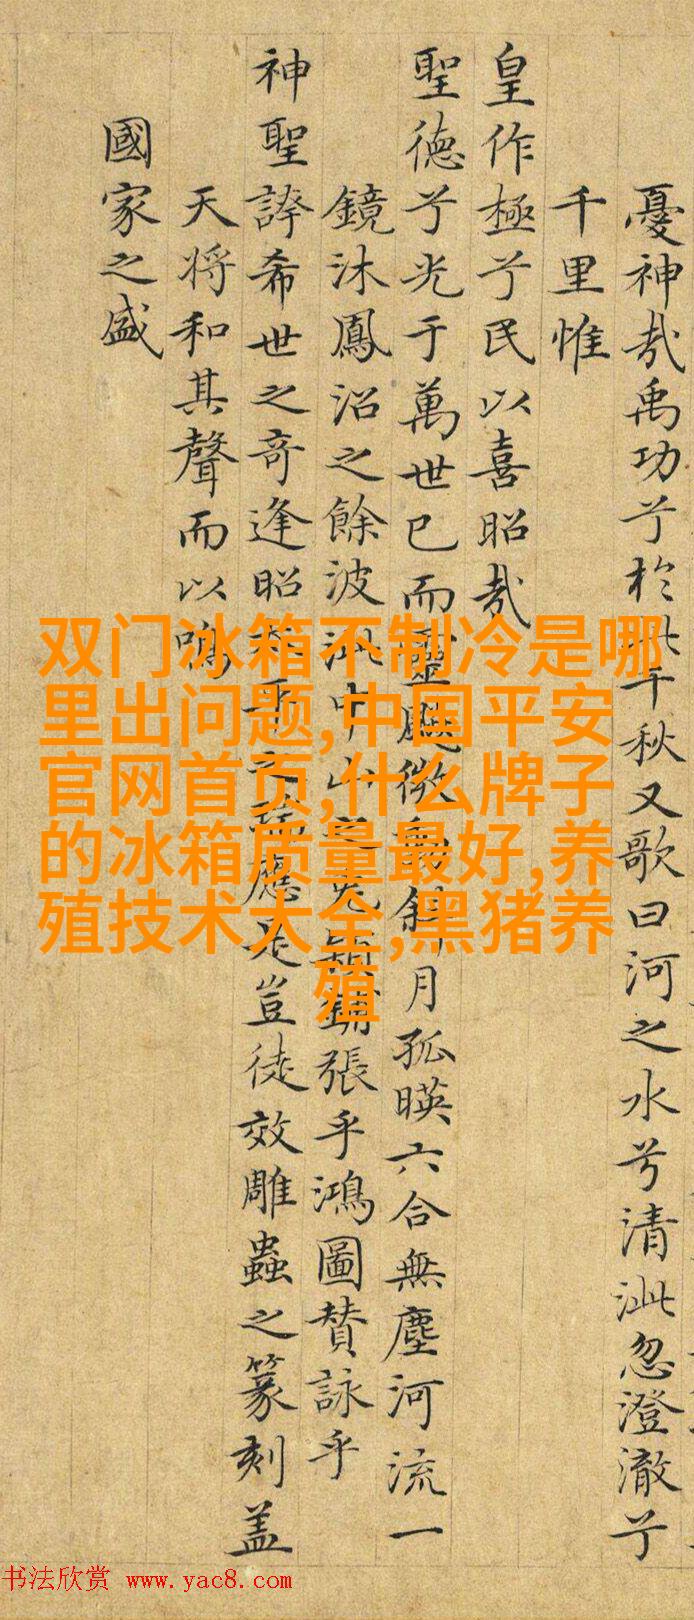 憂神哉禹功兮於此千秋又歌曰河之水兮清泚忽澄澈兮
千里惟
皇作極兮民以喜昭哉
聖德兮光于萬世已而靈飈微斜月孤暎六合無塵河流一
鏡沐鳳沼之餘波泚中山之兔穎鋪張乎鴻圖賛詠乎
神聖誇希世之奇逢昭平之應是豈徒效雕蟲之篆刻盖
天将和其聲而以鳴
國家之盛
双门冰箱不制冷是哪
里出问题,中国平安
官网首页,什么牌子
的冰箱质量最好,养
殖技术大全,黑猪养
殖
书法欣赏 www.yac8.com